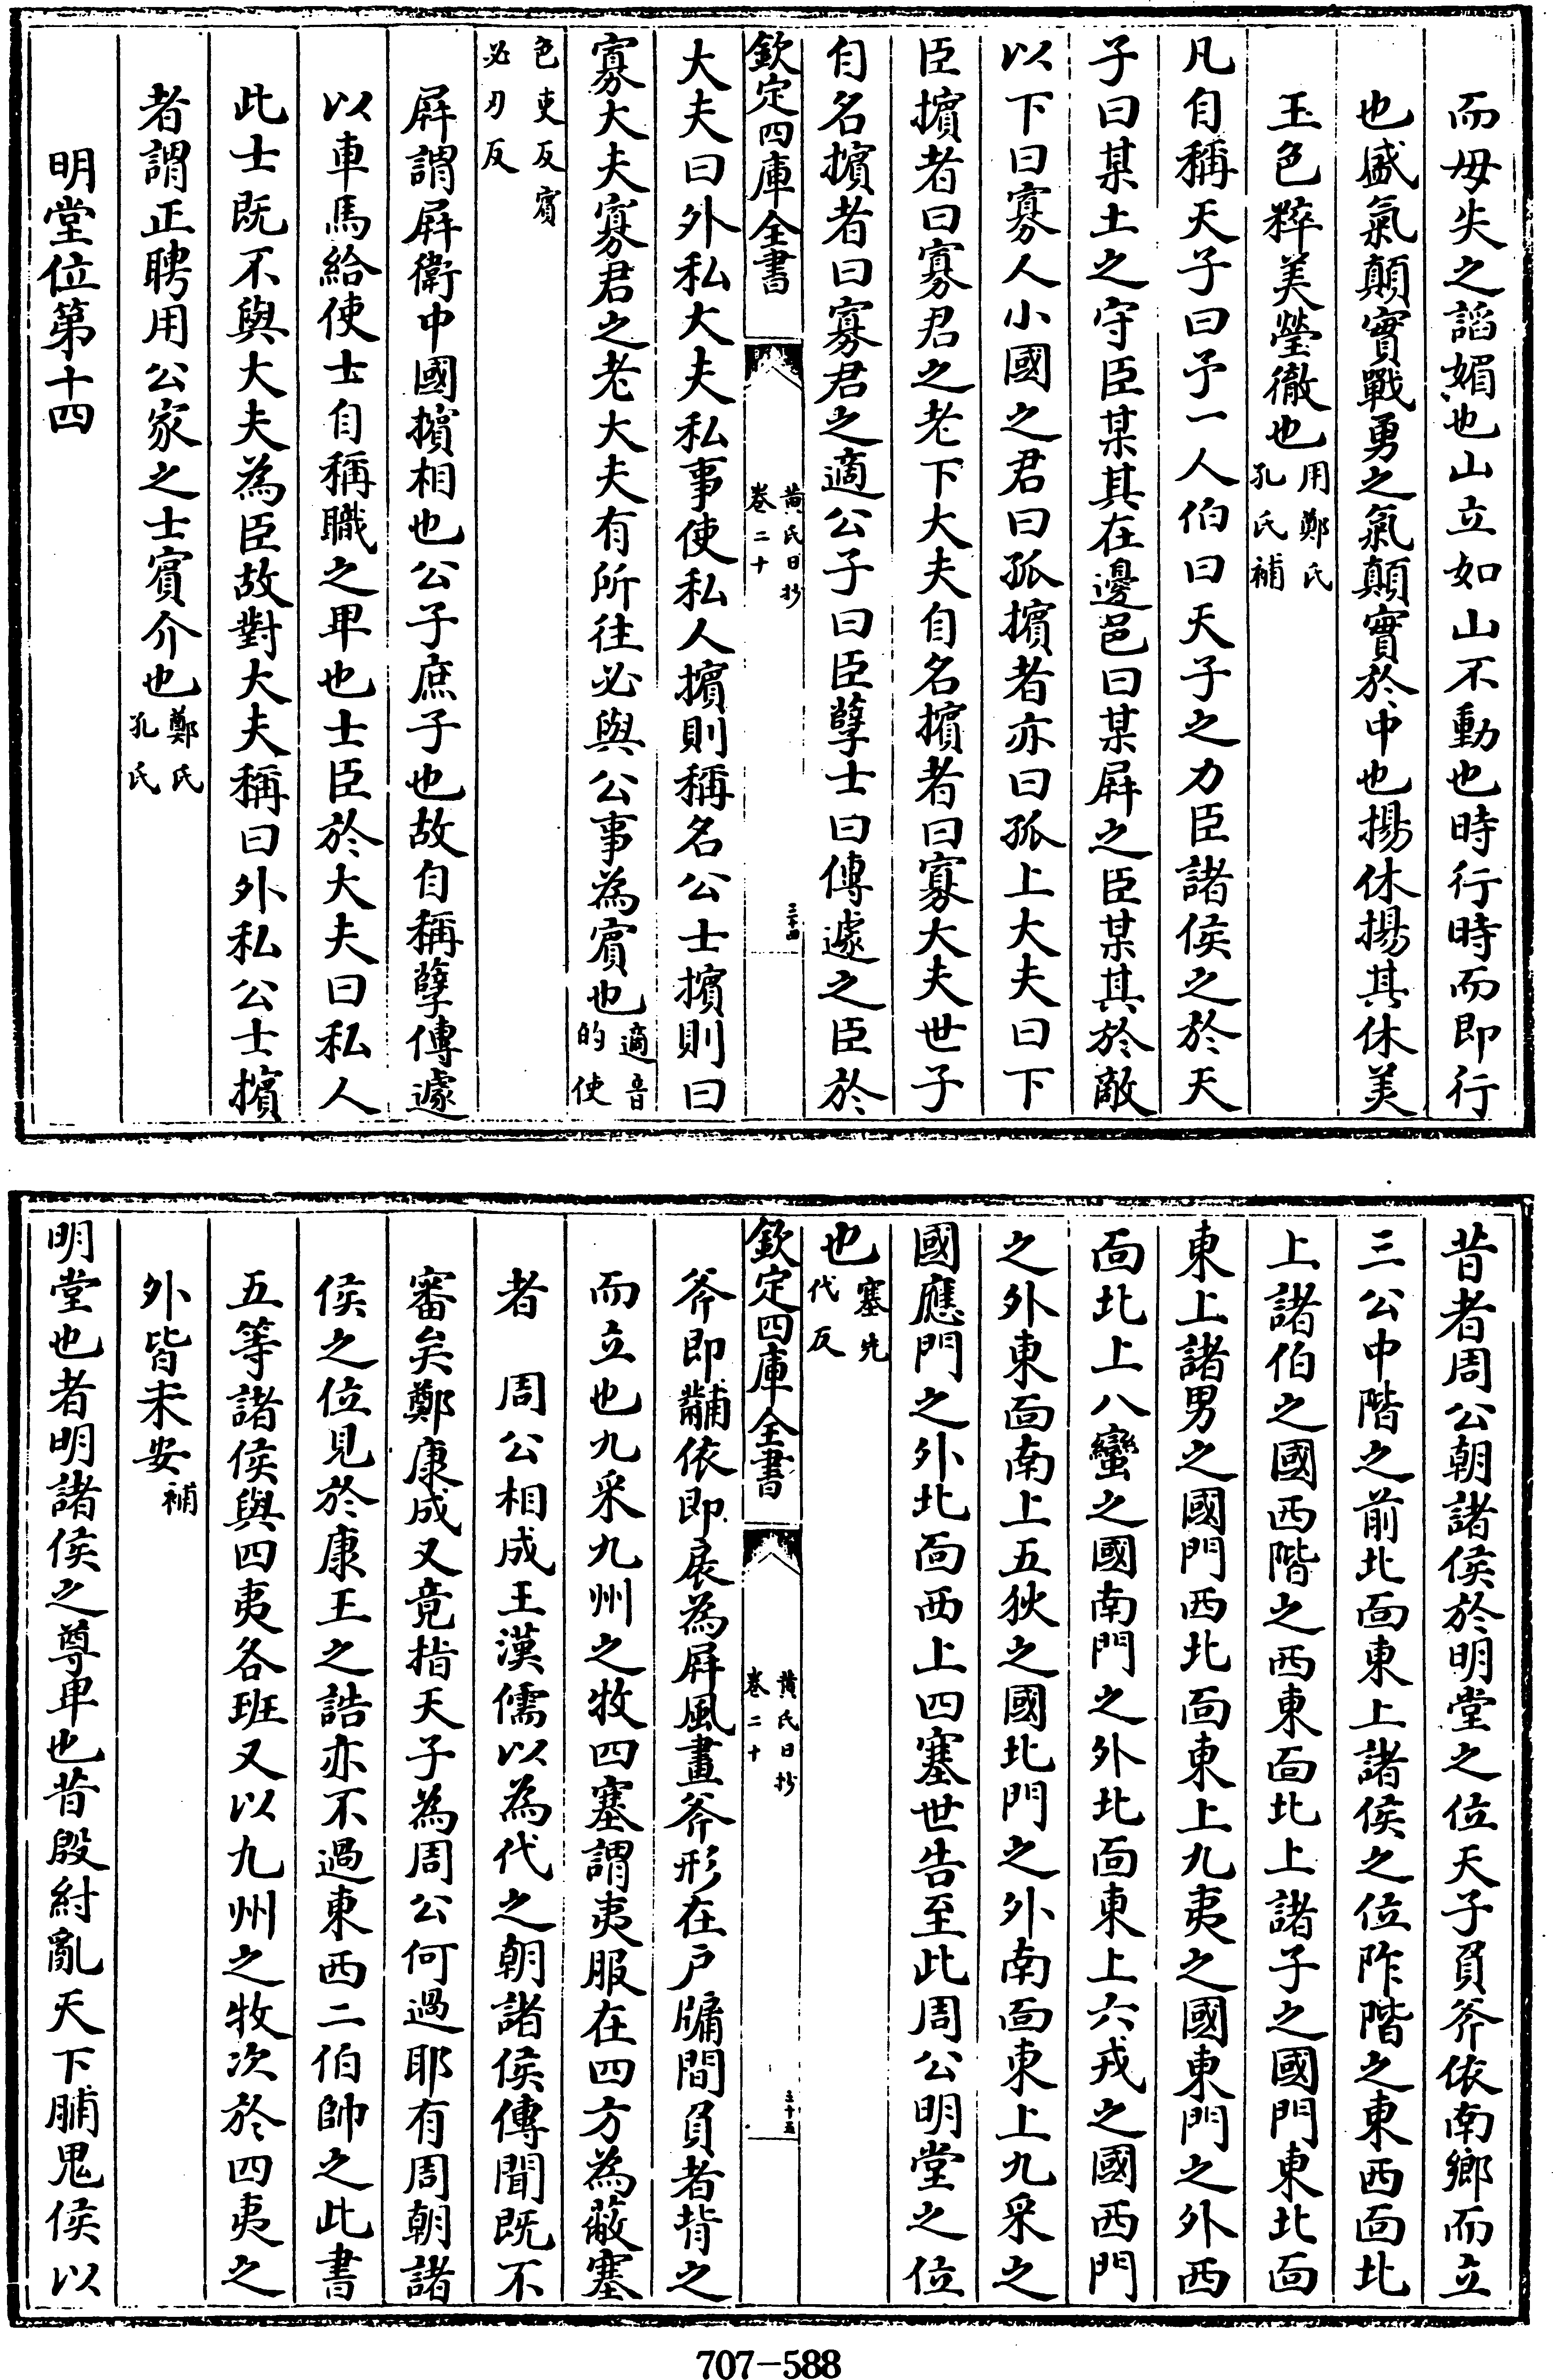 而毋失之謟媚也山立如山不動也時行時而即行
也盛氣顛實戰勇之氣顛實於中也揚休揚其休美
玉色粹美瑩徹也用鄭氏孔氏補
凡自稱天子曰予一人伯曰天子之力臣諸侯之於天
子曰某土之守臣某其在邊邑曰某屏之臣某其於敵
以下曰寡人小國之君曰孤擯者亦曰孤上大夫曰下
臣擯者曰寡君之老下大夫自名擯者曰寡大夫世子
自名擯者曰寡君之適公子曰臣孽士曰傳遽之臣於
欽定四庫全書
黃氏日抄
卷二十
三十四
大夫曰外私大夫私事使私人擯則稱名公士擯則曰
寡大夫寡君之老大夫有所往必與公事為賓也適音的使
色吏反賓必刃反
屏謂屏衛中國擯相也公子庶子也故自稱孽傳遽
以車馬給使士自稱職之卑也士臣於大夫曰私人
此士既不與大夫為臣故對大夫稱曰外私公士擯
者謂正聘用公家之士賓介也鄭氏孔氏
明堂位第十四
昔者周公朝諸侯於明堂之位天子負斧依南鄉而立
三公中階之前北面東上諸侯之位阼階之東西面北
上諸伯之國西階之西東面北上諸子之國門東北面
東上諸男之國門西北面東上九夷之國東門之外西
面北上八蠻之國南門之外北面東上六戎之國西門
之外東面南上五狄之國北門之外南面東上九采之
國應門之外北面西上四塞世告至此周公明堂之位
也塞先代反
欽定四庫全書
黃氏日抄
卷二十
三十五
斧即黼依即扆為屏風畫斧形在户牖間負者背之
而立也九采九州之牧四塞謂夷服在四方為蔽塞
者 周公相成王漢儒以為代之朝諸侯傳聞既不
審矣鄭康成又竟指天子為周公何過耶有周朝諸
侯之位見於康王之誥亦不過東西二伯帥之此書
五等諸侯與四夷各班又以九州之牧次於四夷之
外皆未安補
明堂也者明諸侯之尊卑也昔殷紂亂天下脯鬼侯以
707-588